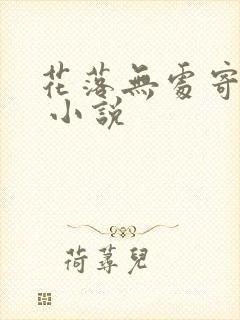 花落無處寄
小說
荷蕁兒